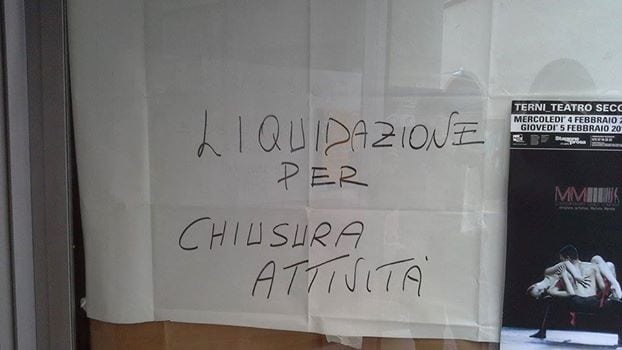 LIQUIDAZIONE
PER
CHIUSURA
ATTIVITÀ
TERNI_TEATRO SECC
MERCOLEDI' 4 FEBBRAIO 2
GIOVEDI' 5 FEBBRAIO 20
MM